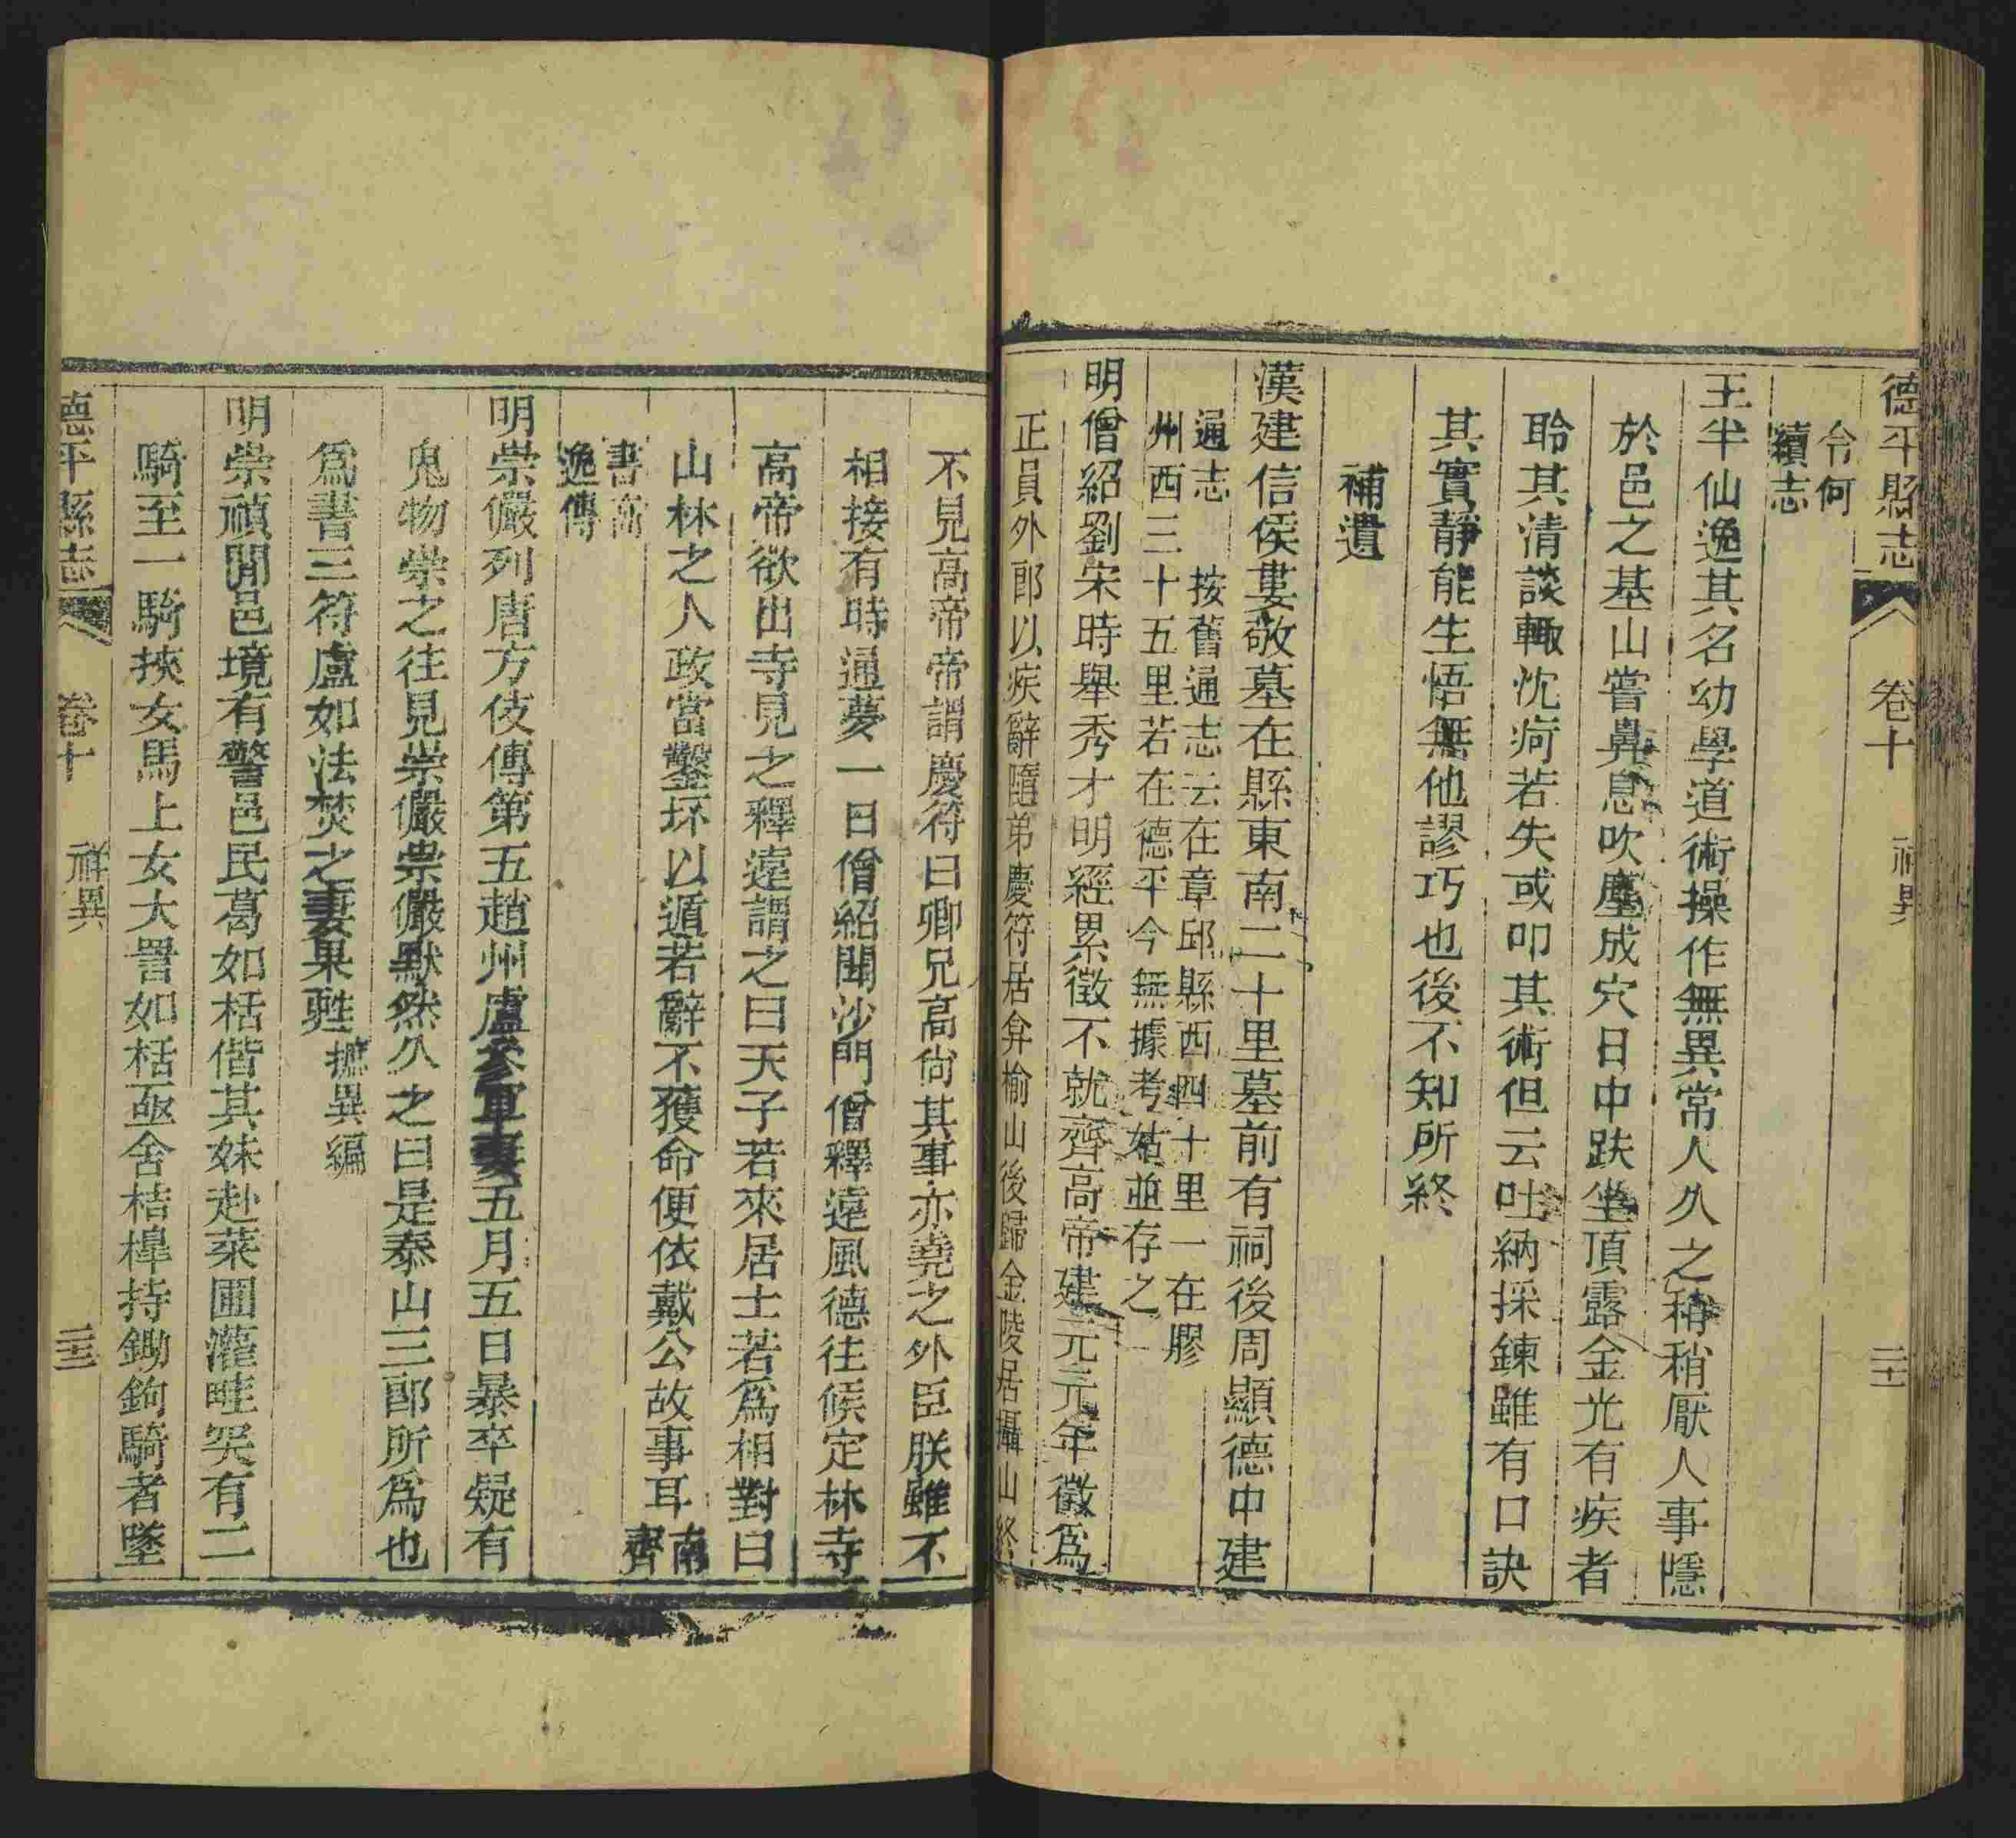 德平縣志 卷十 祥異 二十二
令何
續志
王半仙逸其名幼學道術操作無異常人久之稍稍厭人事隱
於邑之基山嘗鼻息吹塵成穴日中趺坐頂露金光有疾者
聆其清談輒沈疴若失或叩其術但云吐納採鍊雖有口訣
其實靜能生悟無他謬巧也後不知所終
補遺
漢建信侯婁敬墓在縣東南二十里墓前有祠後周顯德中建
通志 按舊通志云在章邱縣西四十里一在膠
州西三十五里若在德平今無據考姑並存之
明僧紹劉宋時舉秀才明經累徵不就齊高帝建元元年徵爲
正員外郎以疾辭隨弟慶符居弇榆山後歸金陵居攝山終
不見高帝帝謂慶符曰卿兄高尙其事亦堯之外臣朕雖不
相接有時通夢一日僧紹聞沙門僧釋遠風德往候定林寺
高帝欲出寺見之釋遠謂之曰天子若來居士若爲相對曰
山林之人政當鑿坏以遁若辭不獲命便依戴公故事耳 南齊
書高
逸傳
明崇儼列唐方伎傳第五趙州盧參軍妻五月五日暴卒疑有
鬼物祟之往見崇儼崇儼默然久之曰是泰山三郎所爲也
爲書三符盧如法焚之妻果甦 摭異編
明崇禎閒邑境有警邑民葛如栝偕其妹赴菜圃灌畦突有二
騎至一騎挾女馬上女大詈如栝亟舍桔槹持鋤鉤騎者墜
德平縣志 卷十 祥異 二十三